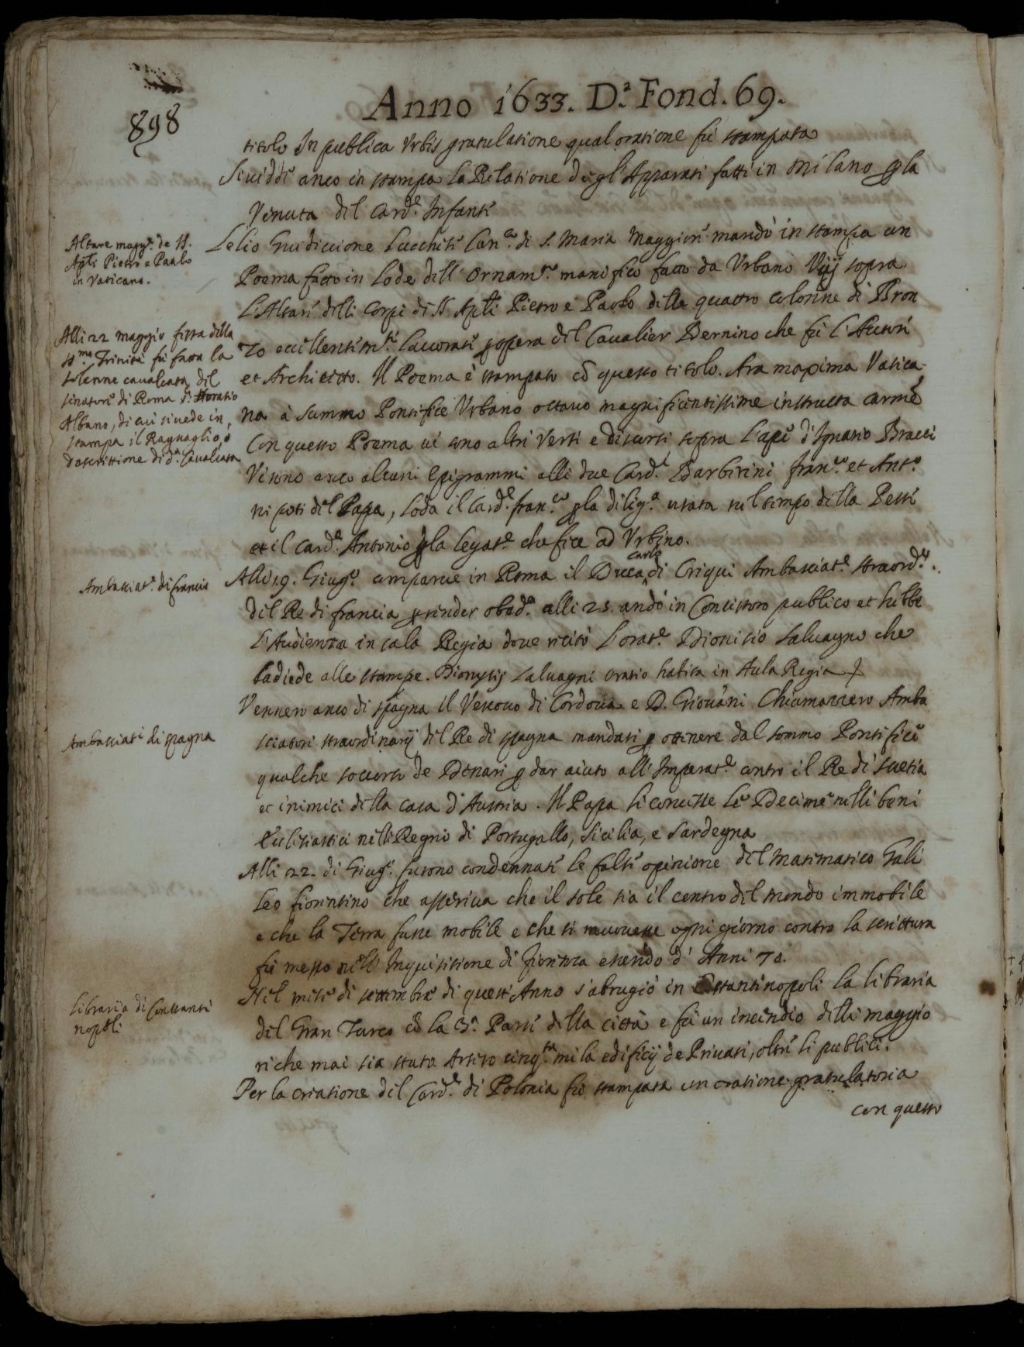 898
Anno 1633. D.ª Fond. 69.
titolo In publica Urbis gratulatione qual oratione fù stampata
Si vidde anco in stampa la Relatione degl'Apparati fatti in Milano p la
Venuta del Card.e Infante
Altare magg.e de SS.
Apli Pietro e Paulo
in Vaticano.
Lelio Guidiccione Lucchese Can.co di S. Maria Maggiore mandò in stampa un
Poema fatto in Lode dell'Ornam.to manifico fatto da Urbano Viij sopra
L'Altare delli Corpi di SS. Apli Pietro e Paolo della quattro colonne di Bron
zo eccellentim.te lavorate p opera del Cavalier Bernino che fù l'Autore
et Architetto. Il Poema è stampato cō questo titolo. Ara maxima Vatica
na à Summo Pontifice Urbano octavo magnificentissime instructa carmē
Con questo Poema vi sono altri Versi e discorsi sopra l'ape d'Ignatio Bracci
Vi sono anco alcuni Epigrammi alli due Card.i Barberini fran.co et Ant.o
nipoti del Papa, Loda il Card.e fran.co p la dilig.a usata nel tempo della Peste
et il Card.e Antonio p la legat.e che fece ad Urbino.
Alli 22 maggio festa della
SS.ma Trinità fù fatta la
solenne cavalcata del
senatore di Roma d. Horatio
Albano, di cui si vede in
stampa il Raguaglio, o
descrittione di d.a Cavalcata
Ambasciat.e di francia
Alli 19. Giug.o comparve in Roma il Duca Carlo di Criqui Ambasciat.e straord.o
del Re di francia p render obed.a alli 25. andò in Concistoro publico et hebbe
l'Audienza in sala Regia dove recitò l'orat.e Dionisio Salvagno che
la diede alle stampe. Dionysij Salvagni oratio habita in Aula Regia
Ambasciati di spagna
Vennero anco di spagna il Vescovo di Cordova e D. Giovāni Chiamazzero Amba
sciatori straordinarij del Re di spagna mandati p ottenere dal sommo Pontefice
qualche soccorso de Denari p dar aiuto all'Imperat.e contro il Re di Suetia
et inimici della casa d'Austria. Il Papa li concesse le Decime nelli beni
Ecclesiastici nelli Regno di Portugallo, Sicilia, e Sardegna
Alli 22. di Giug.o furono condennate le false opinione del Matimatico Gali
leo fiorentino che asseriva che il sole sia il centro del mondo immobile
e che la Terra fusse mobile e che si movesse ogni giorno contro la scrittura
fù messo nell'Inquisitione di fiorenza essendo d'Anni 70.
Libraria di Constanti
nopoli
Nel mese di settembre di quest'Anno s'abrugiò in Costantinopoli la libraria
del Gran Turco cō la 3.a Parte della città e fù un incendio delli maggio
ri che mai sia stato Arsero cinq.ta mila edificij de Privati, oltre li publici.
Per la creatione del Card.e di Polonia fù stampata un oratione gratulatoria
con questo